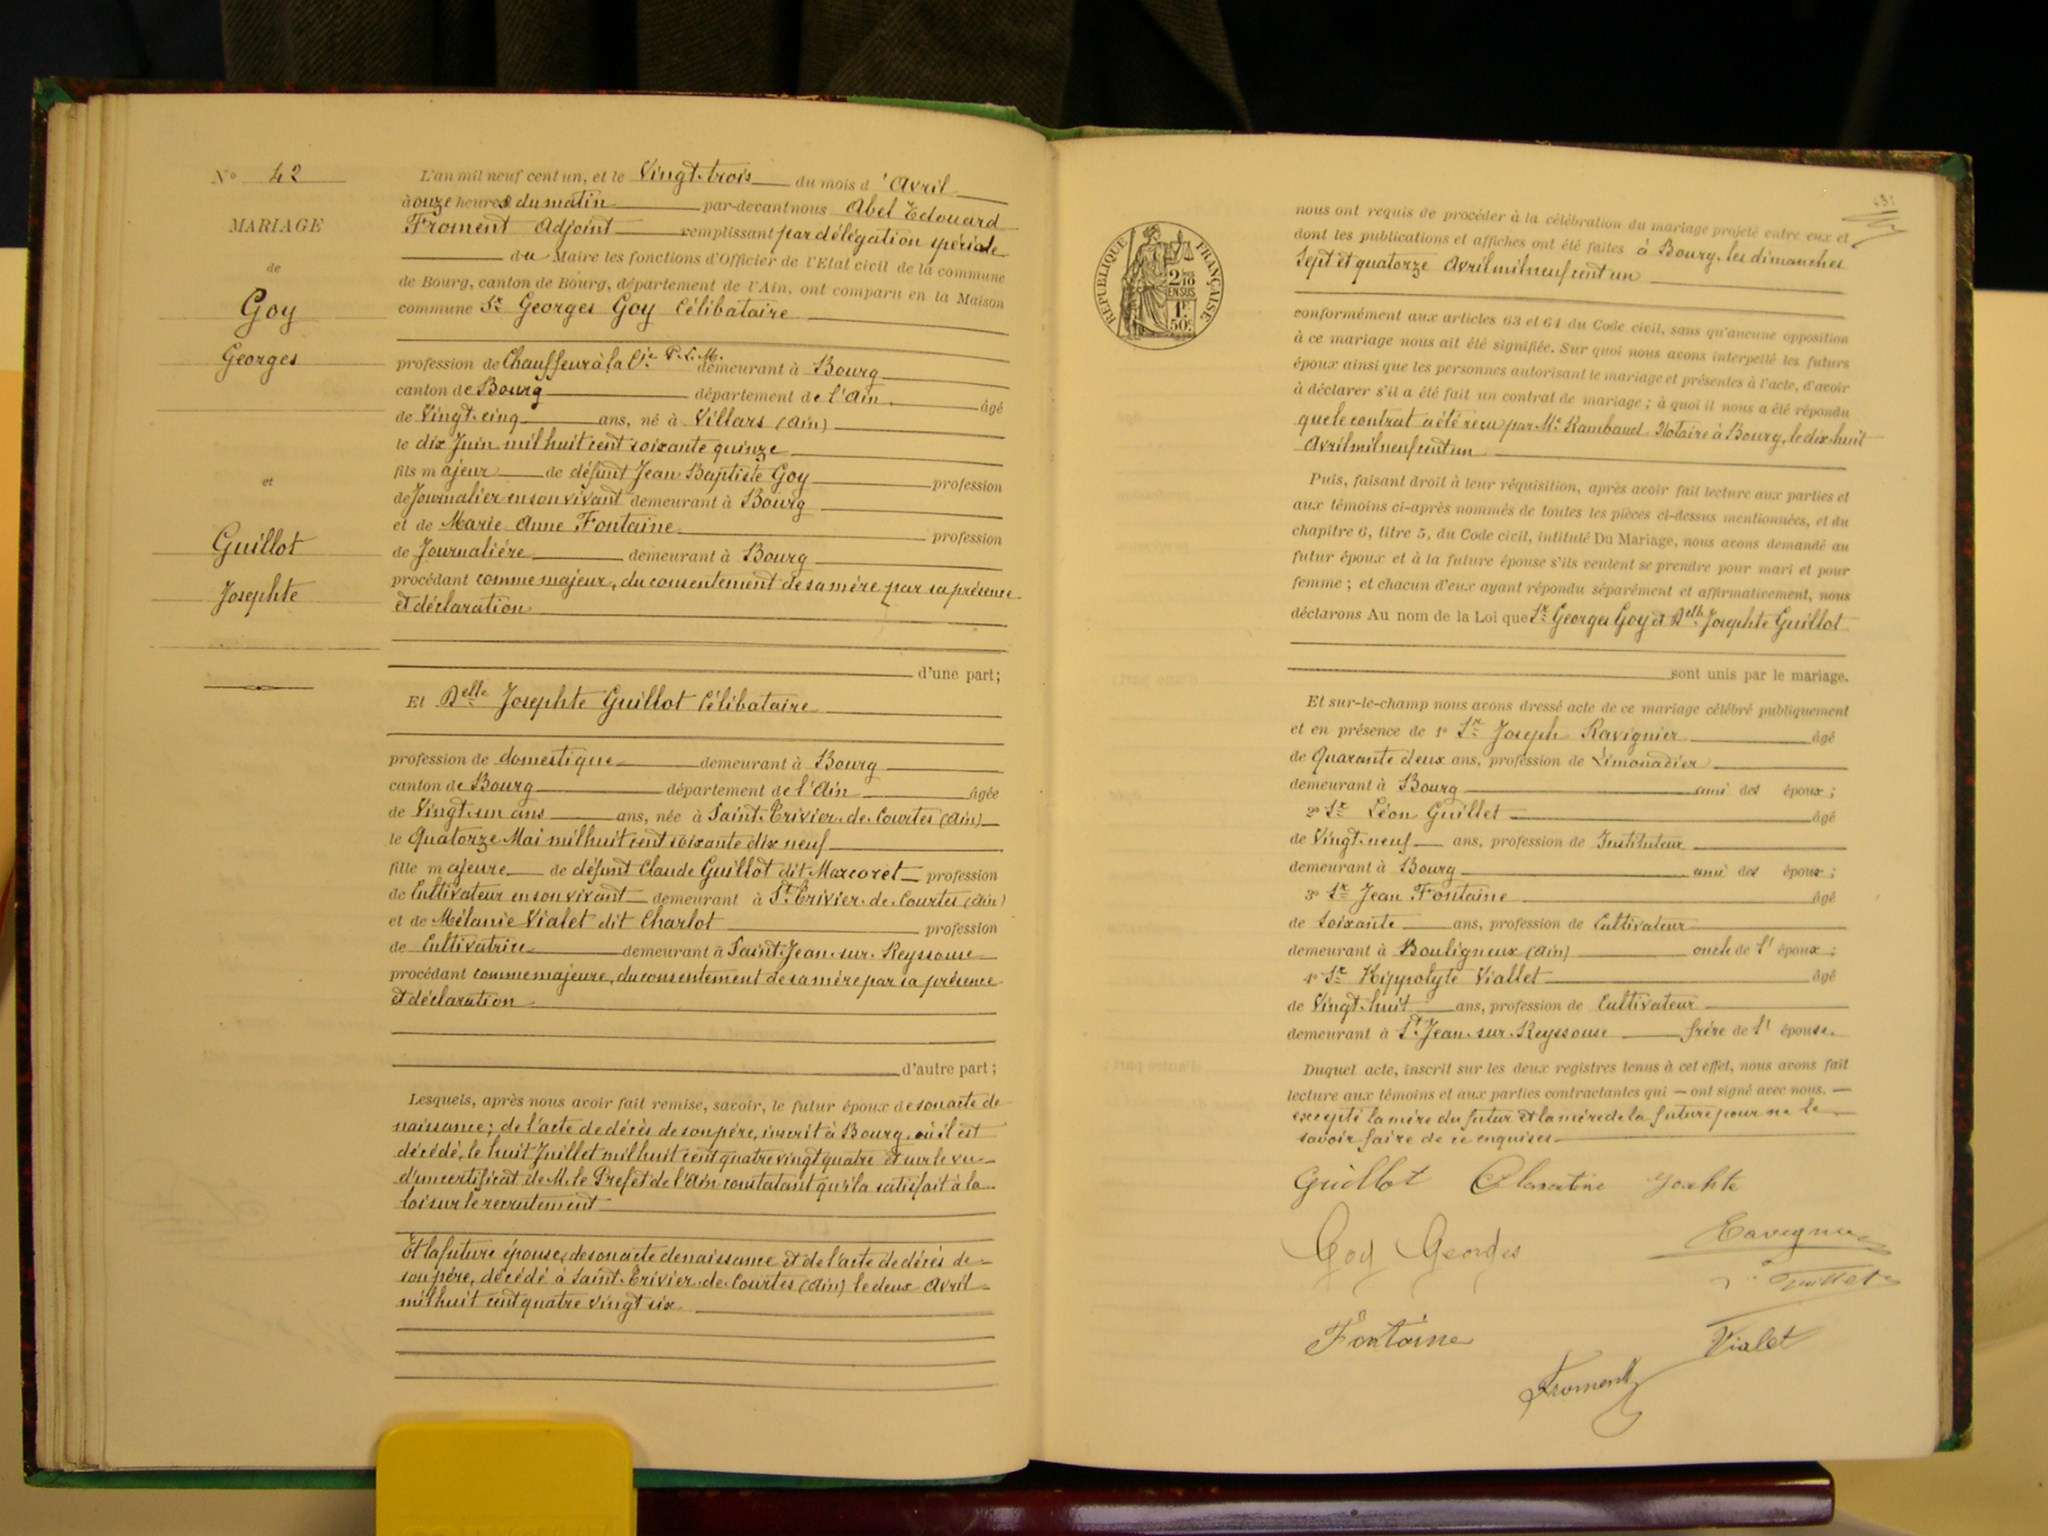 N° 42
MARIAGE
de
Goy
Georges
et
Guillot
Josephte
L'an mil neuf cent un, et le Vingt-trois du mois d'Avril
à onze heures du matin par-devant nous Abel Edouard
Froment Adjoint remplissant par délégation spéciale
du Maire les fonctions d'Officier de l'Etat civil de la commune
de Bourg, canton de Bourg, département de l'Ain, ont comparu en la Maison
commune Sr Georges Goy Célibataire
profession de Chauffeur à la Cie P.L.M. demeurant à Bourg
canton de Bourg département de l'Ain âgé
de Vingt-cinq ans, né à Villars (Ain)
le dix Juin mil huit cent soixante quinze
fils majeur de défunt Jean Baptiste Goy profession
de Journalier en son vivant demeurant à Bourg
et de Marie Anne Fontaine profession
de Journalière demeurant à Bourg
procédant comme majeur, du consentement de sa mère par sa présence
et déclaration
d'une part;
Et Delle Josephte Guillot Célibataire
profession de domestique demeurant à Bourg
canton de Bourg département de l'Ain âgée
de Vingt-un ans ans, née à Saint-Trivier-de-Courtes (Ain)
le Quatorze Mai mil huit cent soixante dix neuf
fille majeure de défunt Claude Guillot dit Marcoret profession
de Cultivateur en son vivant demeurant à St Trivier-de-Courtes (Ain)
et de Mélanie Vialet dit Charlot profession
de Cultivatrice demeurant à Saint-Jean-sur-Reyssouse
procédant comme majeure, du consentement de sa mère par sa présence
et déclaration
d'autre part;
Lesquels, après nous avoir fait remise, savoir, le futur époux de son acte de
naissance; de l'acte de décès de son père, inscrit à Bourg, où il est
décédé, le huit Juillet mil huit cent quatre vingt quatre et sur le vu
d'un certificat de M. le Préfet de l'Ain constatant qu'il a satisfait à la
loi sur le recrutement
Et la future épouse, de son acte de naissance et de l'acte de décès de
son père, décédé à Saint-Trivier-de-Courtes (Ain) le deux Avril
mil huit cent quatre vingt six
431
RÉPUBLIQUE FRANÇAISE
2/10
EN SUS
1F
50c
nous ont requis de procéder à la célébration du mariage projeté entre eux et
dont les publications et affiches ont été faites à Bourg, les dimanches
sept et quatorze Avril mil neuf cent un
conformément aux articles 63 et 64 du Code civil, sans qu'aucune opposition
à ce mariage nous ait été signifiée. Sur quoi nous avons interpellé les futurs
époux ainsi que les personnes autorisant le mariage et présentes à l'acte, d'avoir
à déclarer s'il a été fait un contrat de mariage; à quoi il nous a été répondu
que le contrat a été reçu par Me Rambaud Notaire à Bourg, le dix huit
Avril mil neuf cent un
Puis, faisant droit à leur réquisition, après avoir fait lecture aux parties et
aux témoins ci-après nommés de toutes les pièces ci-dessus mentionnées, et du
chapitre 6, titre 5, du Code civil, intitulé Du Mariage, nous avons demandé au
futur époux et à la future épouse s'ils veulent se prendre pour mari et pour
femme; et chacun d'eux ayant répondu séparément et affirmativement, nous
déclarons Au nom de la Loi que Sr Georges Goy et Delle Josephte Guillot
sont unis par le mariage.
Et sur-le-champ nous avons dressé acte de ce mariage célébré publiquement
et en présence de 1° Sr Joseph Ravignier âgé
de Quarante deux ans, profession de Limonadier
demeurant à Bourg ami des époux;
2° Sr Léon Guillet âgé
de Vingt-neuf ans, profession de Instituteur
demeurant à Bourg ami des époux;
3° Sr Jean Fontaine âgé
de soixante ans, profession de Cultivateur
demeurant à Bouligneux (Ain) oncle de l'époux;
4° Sr Hippolyte Viallet âgé
de Vingt-huit ans, profession de Cultivateur
demeurant à St Jean-sur-Reyssouse frère de l'épouse.
Duquel acte, inscrit sur les deux registres tenus à cet effet, nous avons fait
lecture aux témoins et aux parties contractantes qui — ont signé avec nous. —
excepté la mère du futur et la mère de la future pour ne le
savoir faire de ce enquises
Guillot Josephte
Goy Georges Ravignier
Guillet
Fontaine Vialet
Froment